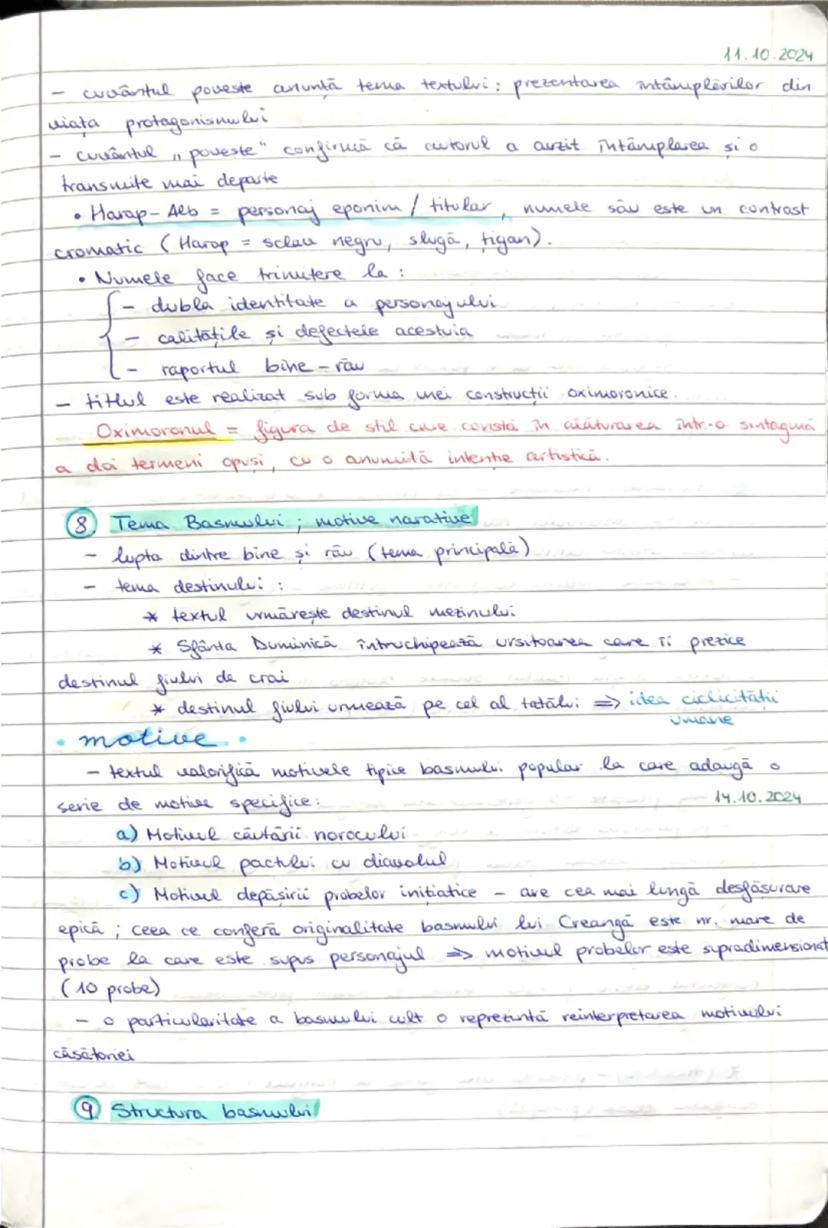 11.10.2024
- cuvântul poveste anunță tema textului: prezentarea întâmplărilor din
viața protagonismului
- cuvântul „poveste" confirmă că autorul a auzit întâmplarea și o
transmite mai departe
• Harap-Alb = personaj eponim / titular, numele său este un contrast
cromatic (Harap = sclav negru, slugă, țigan).
• Numele face trimitere la :
- dubla identitate a personajului
- calitățile și defectele acestuia
- raportul bine-rău
- titlul este realizat sub forma unei construcții oximoronice.
Oximoronul = figura de stil care constă în alăturarea într-o sintagmă
a doi termeni opuși, cu o anumită intenție artistică.
8 Tema Basmului ; motive narative
- lupta dintre bine și rău (tema principală)
- tema destinului :
* textul urmărește destinul mezinului
* Sfânta Duminică întruchipează ursitoarea care îi prezice
destinul fiului de crai
* destinul fiului urmează pe cel al tatălui => idea ciclicității
umane
• motive •
- textul valorifică motivele tipice basmului popular la care adaugă o
serie de motive specifice:
14.10.2024
a) Motivul căutării norocului
b) Motivul pactului cu diavolul
c) Motivul depășirii probelor inițiatice - are cea mai lungă desfășurare
epică ; ceea ce conferă originalitate basmului lui Creangă este nr. mare de
probe la care este supus personajul => motivul probelor este supradimensionat
(10 probe)
- o particularitate a basmului cult o reprezintă reinterpretarea motivului
căsătoriei
9 Structura basmului